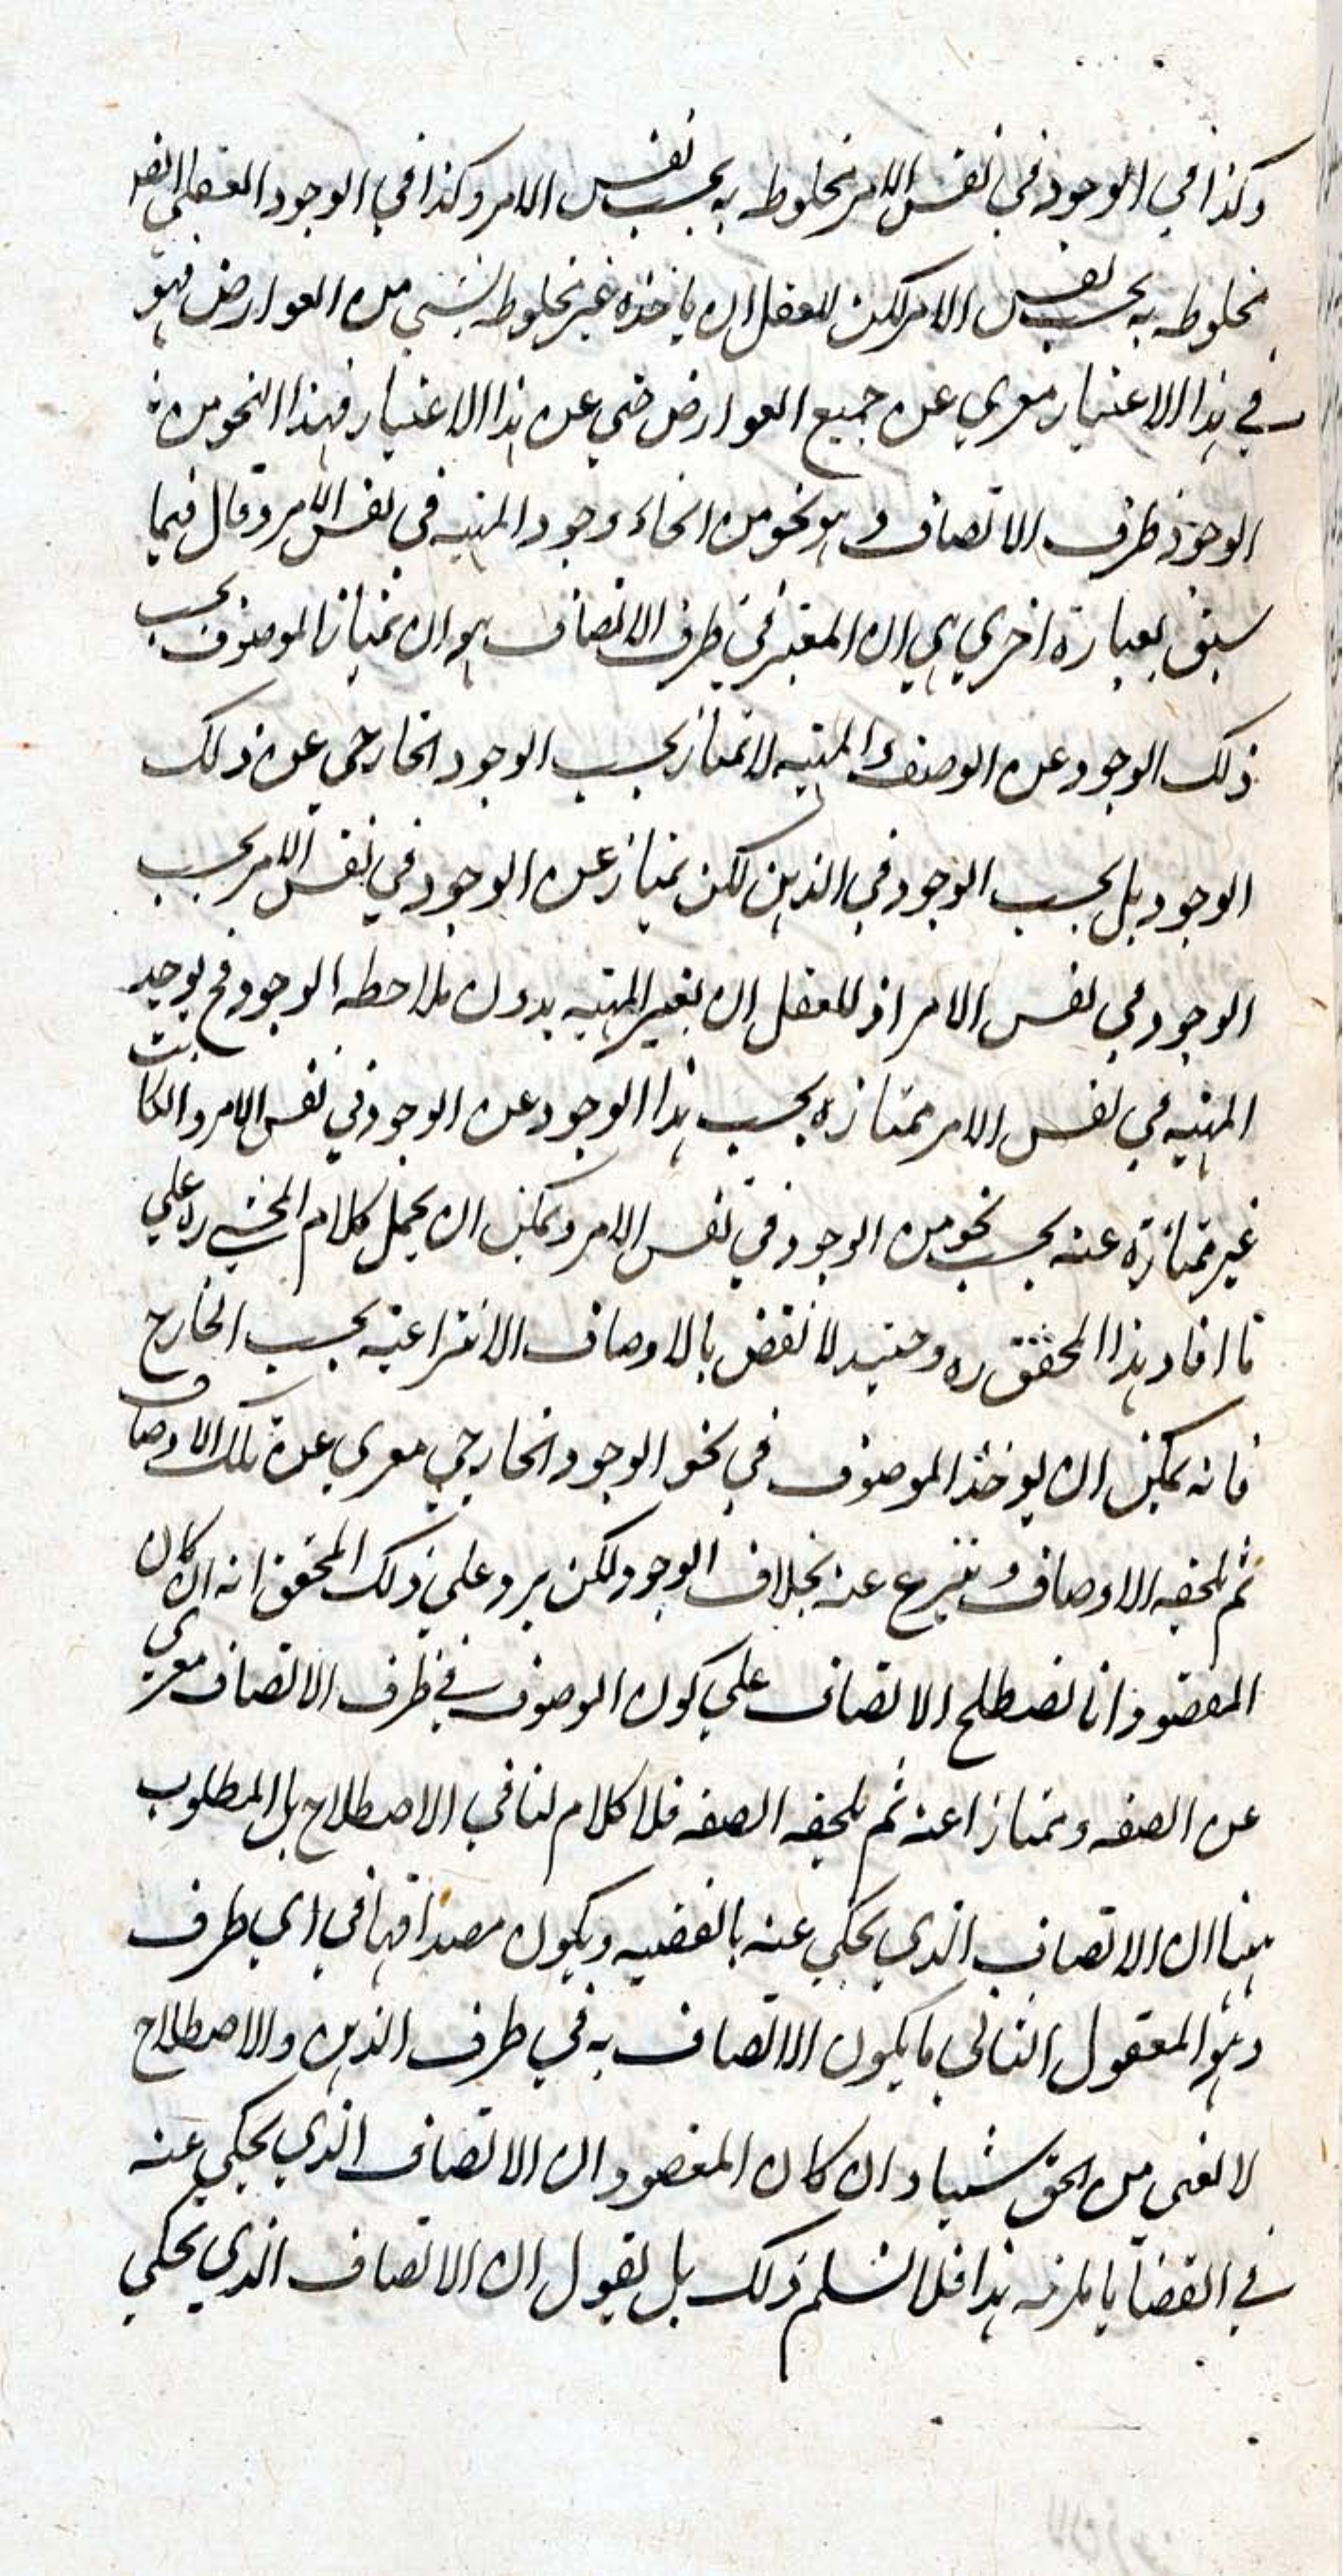 وكذا في الوجود في نفس الامر مخلوطه به بحسب نفس الامر وكذا في الوجود العقلي ايضا
مخلوطه به بحسب نفس الامر لكن للعقل ان ياخذه غير مخلوطه بشيء من العوارض فهو
في هذا الاعتبار معري عن جميع العوارض حتي عن هذا الاعتبار فهذا النحو من
الوجود ظرف الاتصاف و هو نحو من انحاء وجود المهيه في نفس الامر وقال فيما
سبق بعبارة اخري هي ان المعتبر في ظرف الاتصاف هو ان يمتاز الموصوف بحسب
ذلك الوجود عن الوصف والمهيه لا تمتاز بحسب الوجود الخارجي عن ذلك
الوجود بل بحسب الوجود في الذهن لكن يمتاز عن الوجود في نفس الامر بحسب
الوجود في نفس الامر اذ للعقل ان يعتبر المهيه بدون ملاحظه الوجود فح يوجد
المهيه في نفس الامر ممتازه بحسب هذا الوجود عن الوجود في نفس الامر و ان كانت
غير ممتازة عنه بحسب نحو من الوجود في نفس الامر ويمكن ان يحمل كلام المحشي ره علي
ما افاد هذا المحقق ره وحينئذ لا نقض بالاوصاف الانتزاعيه بحسب الخارج
فانه يمكن ان يوخذ الموصوف في نحو الوجود الخارجي معري عن تلك الاوصاف
ثم يلحقه الاوصاف و ينتزع عنه بخلاف الوجود لكن يرد علي ذلك المحقق انه ان كان
المقصود انا نصطلح الاتصاف علي كون الموصوف في ظرف الاتصاف معري
عن الصفه و ممتازا عنه ثم يلحقه الصفه فلا كلام لنا في الاصطلاح بل المطلوب
ههنا ان الاتصاف الذي يحكي عنه بالقضيه ويكون مصداقها في اي ظرف
وهو المعقول الثاني ما يكون الاتصاف به في ظرف الذهن والاصطلاح
لا يغني من الحق شيئا و ان كان المقصود ان الاتصاف الذي يحكي عنه
في القضايا يلزمه هذا فلا نسلم ذلك بل نقول ان الاتصاف الذي يحكي